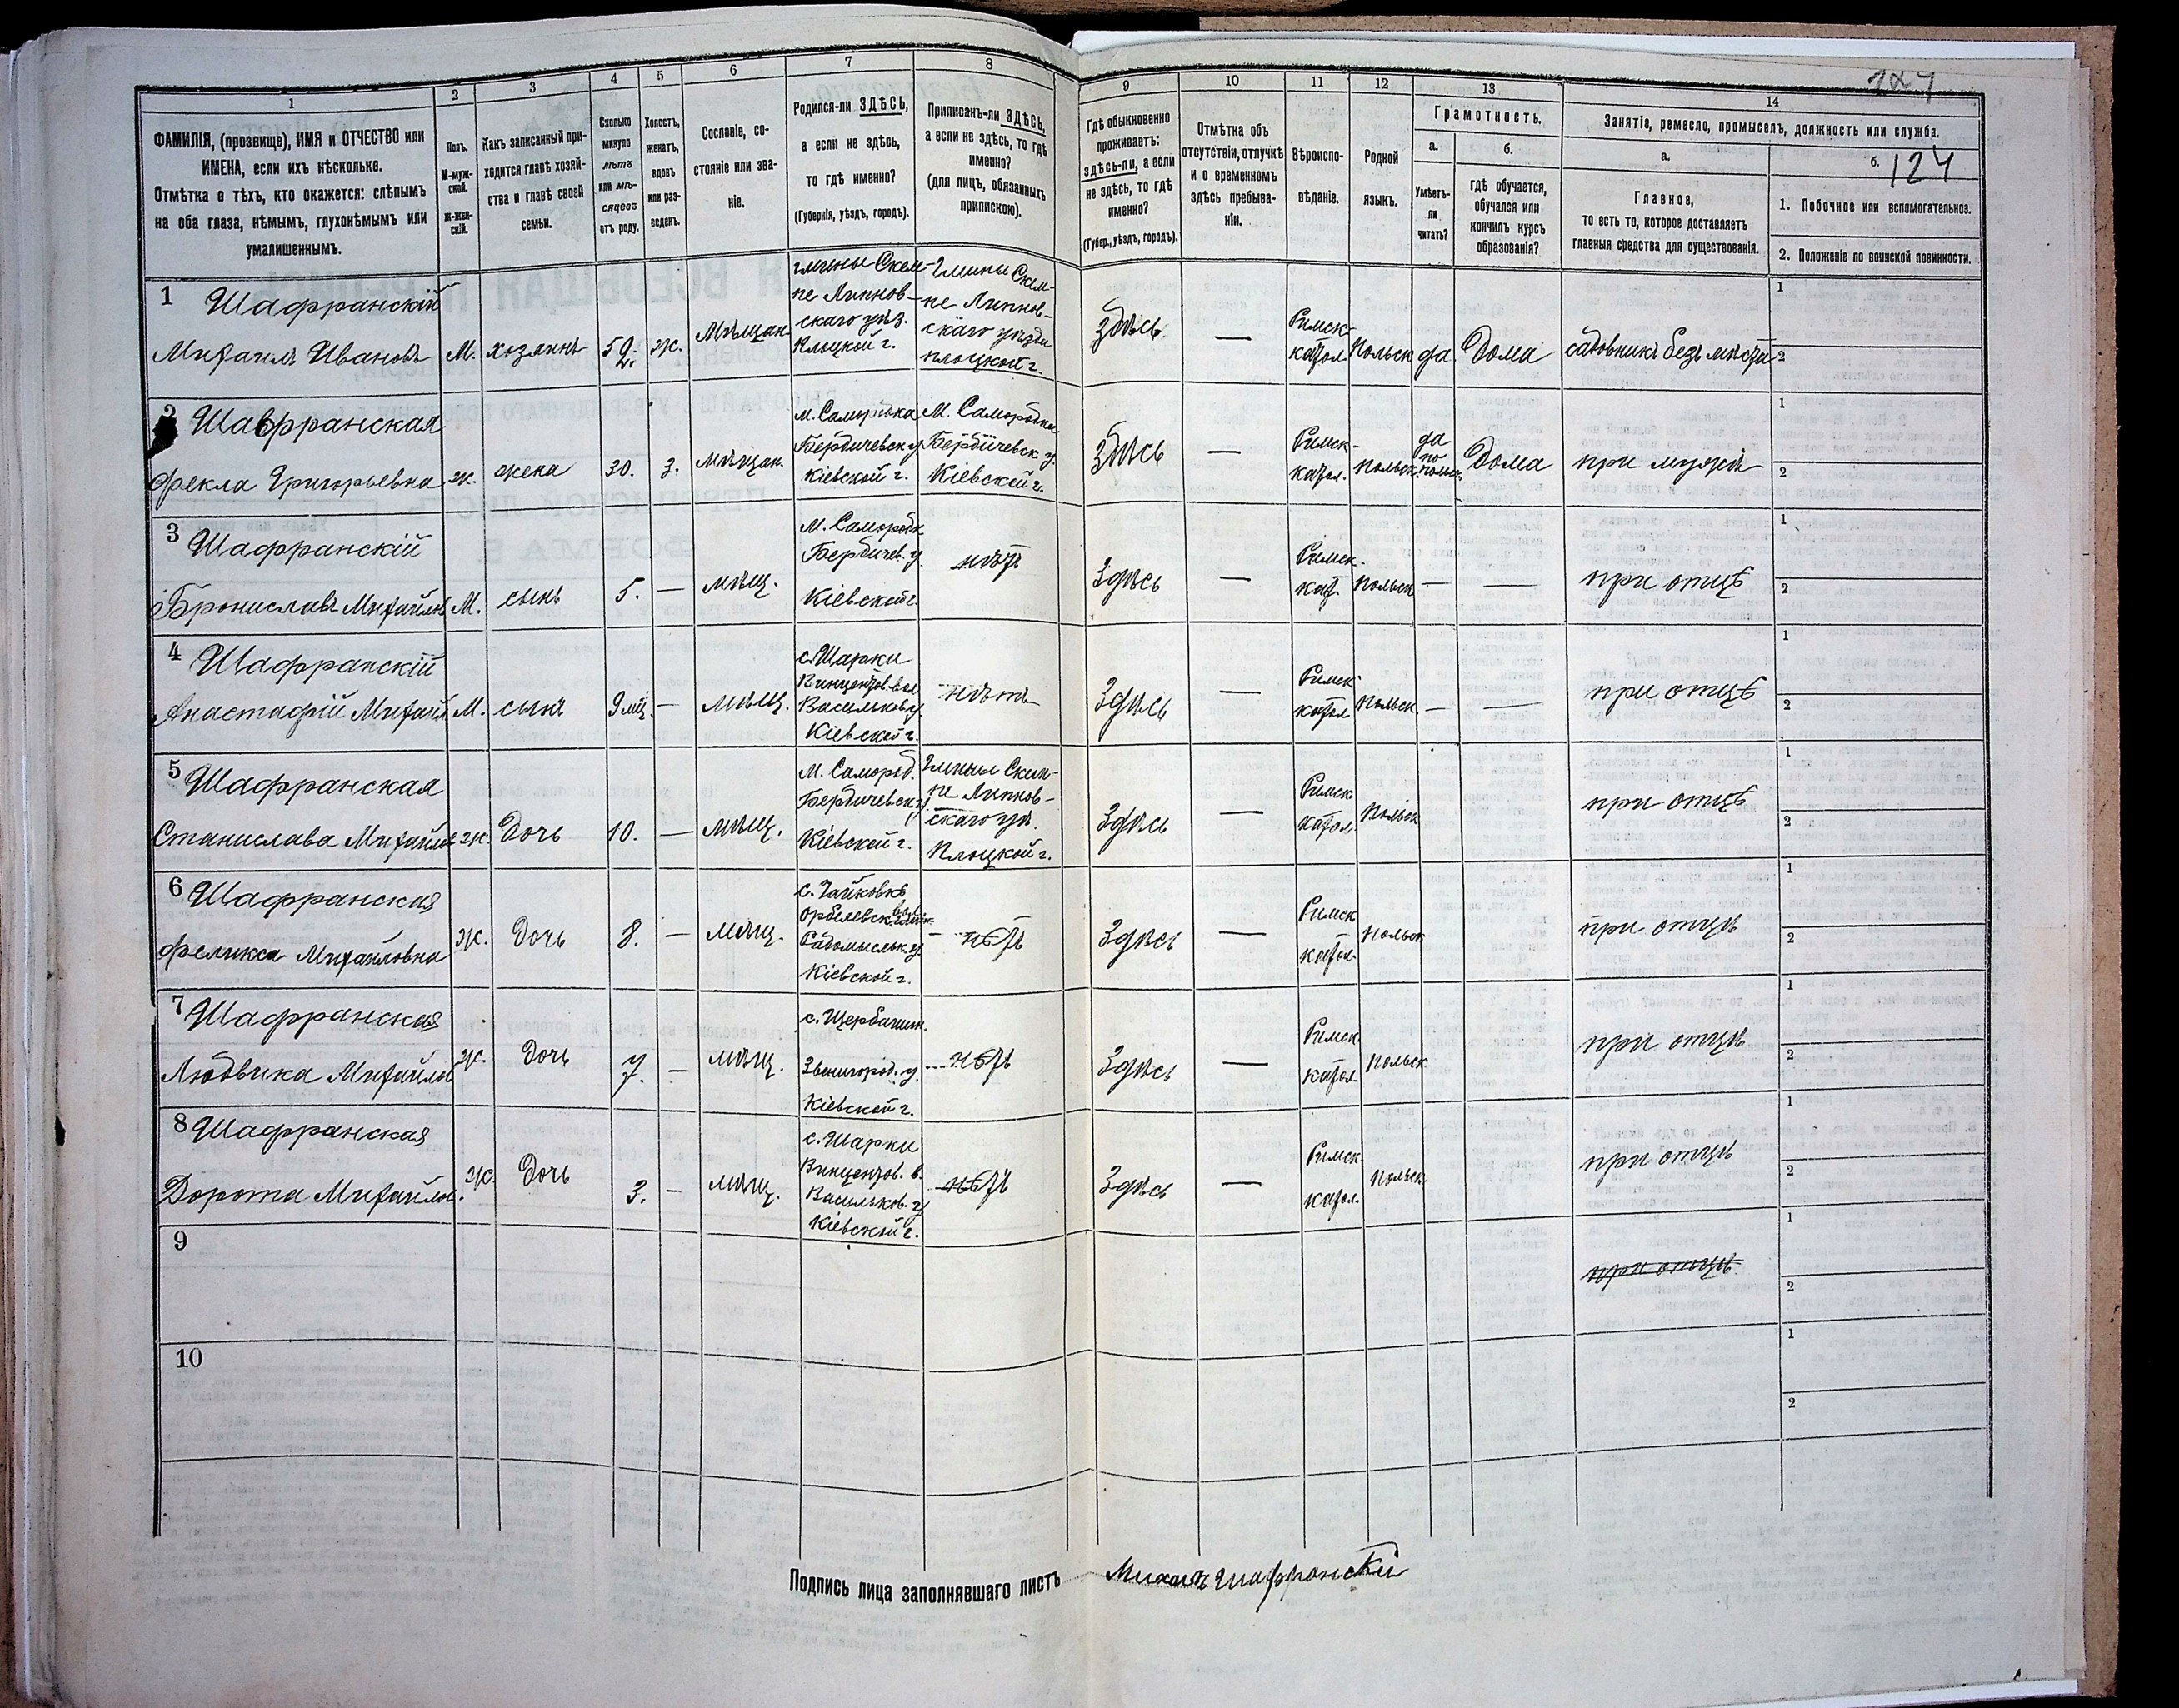 1
2
3
4
5
6
7
8
9
10
11
12
13
14
124
ФАМИЛІЯ, (прозвище), ИМЯ и ОТЧЕСТВО или
ИМЕНА, если ихъ нѣсколько.
Отмѣтка о тѣхъ, кто окажется: слѣпымъ
на оба глаза, нѣмымъ, глухонѣмымъ или
умалишеннымъ.
Полъ.
М-муж-
ской.
Ж-жен-
скій.
Какъ записанный при-
ходится главѣ хозяй-
ства и главѣ своей
семьи.
Сколько
минуло
лѣтъ
или мѣ-
сяцевъ
отъ роду.
Холостъ,
женатъ,
вдовъ
или раз-
веденъ.
Сословіе, со-
стояніе или зва-
ніе.
Родился-ли ЗДѢСЬ,
а если не здѣсь,
то гдѣ именно?
(Губернія, уѣздъ, городъ).
Приписанъ-ли ЗДѢСЬ,
а если не здѣсь, то гдѣ
именно?
(для лицъ, обязанныхъ
припискою).
Гдѣ обыкновенно
проживаетъ:
здѣсь-ли, а если
не здѣсь, то гдѣ
именно?
(Губер., уѣздъ, городъ).
Отмѣтка объ
отсутствіи, отлучкѣ
и о временномъ
здѣсь пребыва-
ніи.
Вѣроиспо-
вѣданіе.
Родной
языкъ.
Грамотность.
а.
Умѣетъ-
ли
читать?
б.
гдѣ обучается,
обучался или
кончилъ курсъ
образованія?
Занятіе, ремесло, промыселъ, должность или служба.
а.
Главное,
то есть то, которое доставляетъ
главныя средства для существованія.
б.
124
1. Побочное или вспомогательное.
2. Положеніе по воинской повинности.
1 Шафранскій
Михаилъ Ивановъ
М.
хозяинъ
59.
ж.
Мѣщан
гмины Скем-
пе Липнов-
скаго уѣз.
Плоцкой г.
Гмины Скем-
пе Липнов-
скаго уѣзда
плоцкой г.
здѣсь.
—
Римск-
катол.
Польск
да
Дома
садовникъ безъ мѣста
1
2
2 Шавфранская
Фекла Григорьевна
ж.
жена
30.
з.
мѣщан.
м. Самородка
Бердичевск у
Кіевской г.
М. Самородка
Бердичевск у.
Кіевской г.
здѣсь
—
Римск-
катол.
польск.
да
по
польск.
Дома
при мужѣ
1
2
3 Шафранскій
Брониславъ Михайлов
М.
сынъ
5.
—
мѣщ.
м. Самородк
Бердичев. у.
Кіевской г.
нѣтъ
Здѣсь
—
Римск.
кат
польск
—
—
при отцѣ
1
2
4 Шафранскій
Анастафій Михайл
М.
сынъ
9 мц.
—
мѣщ.
с. Шарки
Винцентов. вол
Васильков у.
Кіевской г.
нѣтъ
Здѣсь
—
Римск
катол
Польск.
—
—
при отцѣ
1
2
5 Шафранская
Станислава Михайлов
ж.
Дочь
10.
—
мѣщ.
м. Самород.
Бердичевск у.
Кіевской г.
Гмины Скем-
пе Липнов-
скаго уѣ.
Плоцкой г.
Здѣсь
—
Римск
катол.
Польск
при отцѣ
1
2
6 Шафранская
Феликса Михайловна
ж.
Дочь
8.
—
мѣщ.
с. Чайковкѣ
Радомысльк. у.
Кіевской г.
нѣтъ
Здѣсь
—
Римск
катол.
польск
при отцѣ
1
2
7 Шафранская
Людвика Михайлов
ж.
Дочь
7.
—
мѣщ.
с. Щербашин.
Звенигород. у.
Кіевской г.
нѣтъ
Здѣсь
—
Римск
катол.
Польск
при отцѣ
1
2
8 Шафранская
Дорота Михайлов.
ж.
Дочь
3.
—
мѣщ.
с. Шарки
Винцентов. в.
Васильков. у
Кіевской г.
нѣтъ
Здѣсь
—
Римск
катол.
Польск
при отцѣ
1
2
9
при отцѣ
1
2
10
1
2
Подпись лица заполнявшаго листъ
Михаилъ Шафранскій